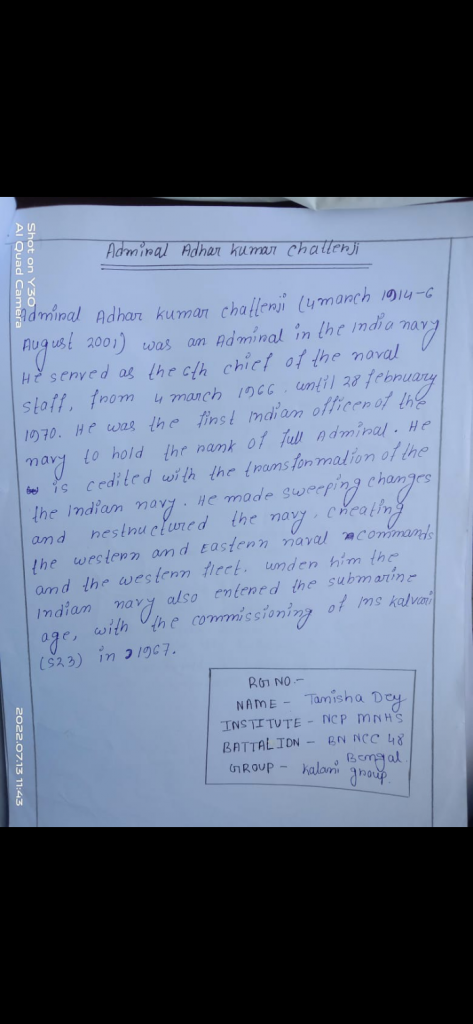 Admiral Adhar kumar chatterji
Admiral Adhar kumar chatterji (4 march 1914-6
August 2001) was an Admiral in the india navy
He served as the 6th chief of the naval
staff, from 4 march 1966. until 28 february
1970. He was the first indian officer of the
navy to hold the rank of full Admiral. He
is cedited with the transformation of the
the Indian navy. He made sweeping changes
and restructured the navy, creating
the western and Eastern naval commands
and the western fleet. under him the
indian navy also entered the submarine
age, with the commissioning of ins kalvari
(S23) in 1967.
RGT NO:-
NAME - Tanisha Dey
INSTITUTE - NCP MNHS
BATTALION - BN NCC 48
Bengal.
GROUP - kalani group.
Shot on Y30
AI Quad Camera
2022.07.13 11:43